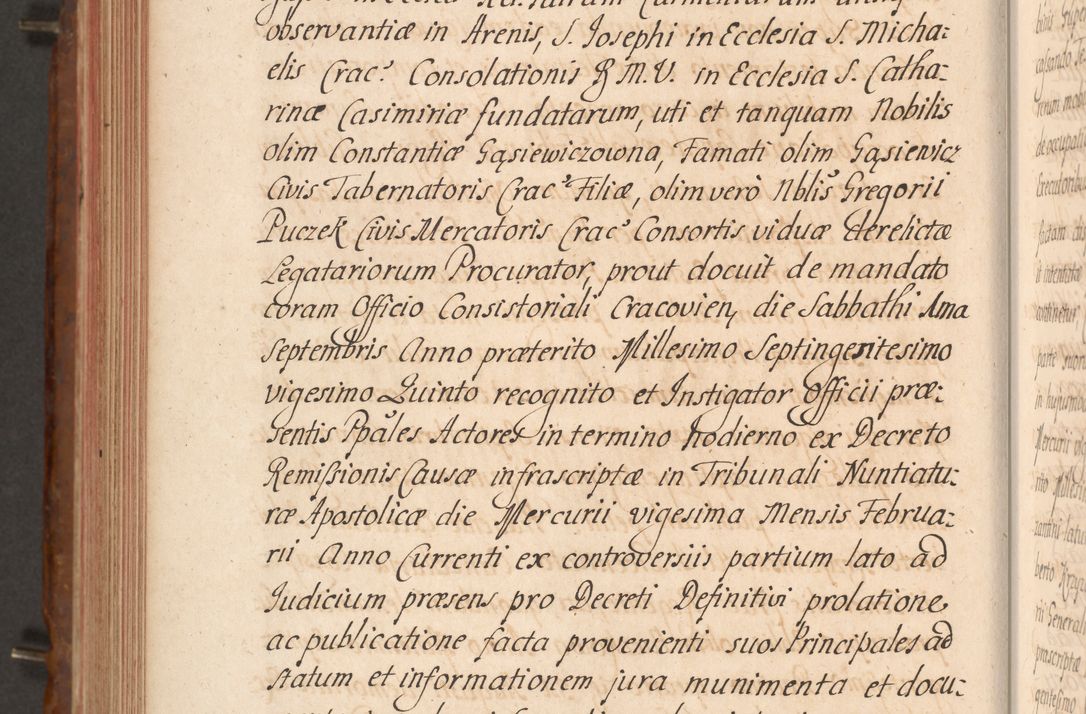 observantiæ in Arenis, S. Josephi in Ecclesia S. Micha:
elis Crac: Consolationis B M. V. in Ecclesia S. Catha:
rinæ Casimiriæ fundatarum, uti et tanquam Nobilis
olim Constantiæ Gąsiewiczowna, Famati olim Gąsiewicz
Civis Tabernatoris Crac: Filiæ, olim verò Nblis Gregorii
Puczek Civis Mercatoris Crac: Consortis viduæ derelictæ
Legatariorum Procurator, prout docuit de mandato
coram Officio Consistoriali Cracovien, die Sabbathi 1ma
Septembris Anno præterito Millesimo Septingentesimo
vigesimo Quinto recognito et Instigator Officii præ:
sentis Ppáles Actores in termino hodierno ex Decreto
Remissionis Causæ infrascriptæ in Tribunali Nuntiatu:
ræ Apostolicæ die Mercurii vigesima Mensis Februa:
rii Anno Currenti ex controversiis partium lato ad
Judicium præsens pro Decreti Definitivi prolatione
ac publicatione facta provenienti suos Principales ad
statum et informationem jura munimenta et docu: